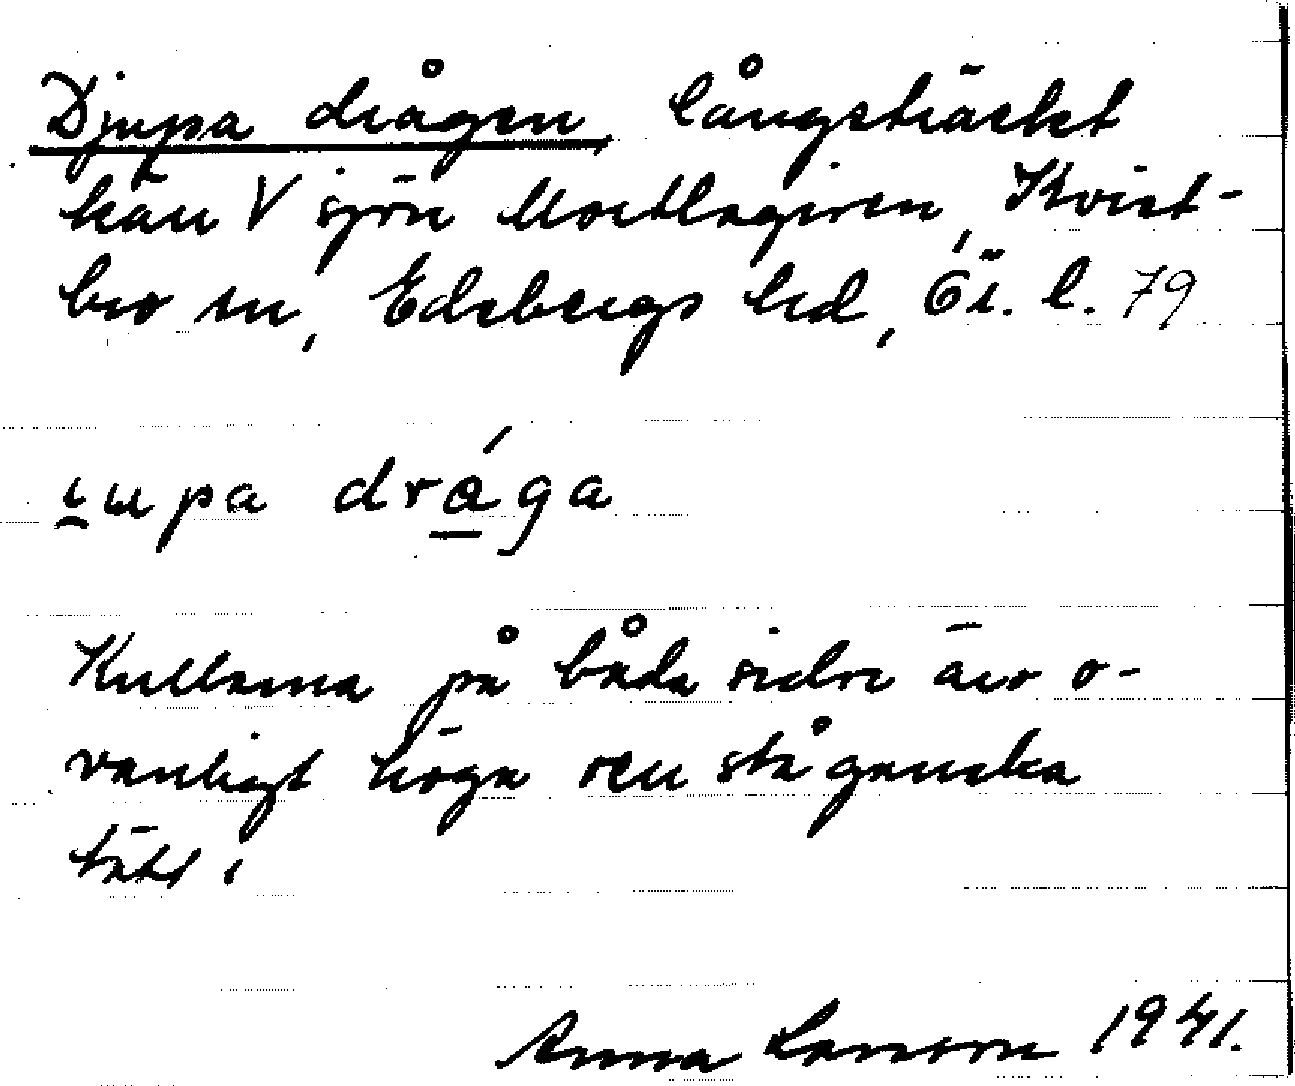 Djupa drågen, långsträckt
kärr V sjön Mortlagiren, Kvist-
bro sn, Edsbergs hd, Ör. l. 79
i̯ɯpa drága
Kullarna på båda sidor äro o-
vanligt höga och stå ganska
tätt i
Anna Larsson 1941.